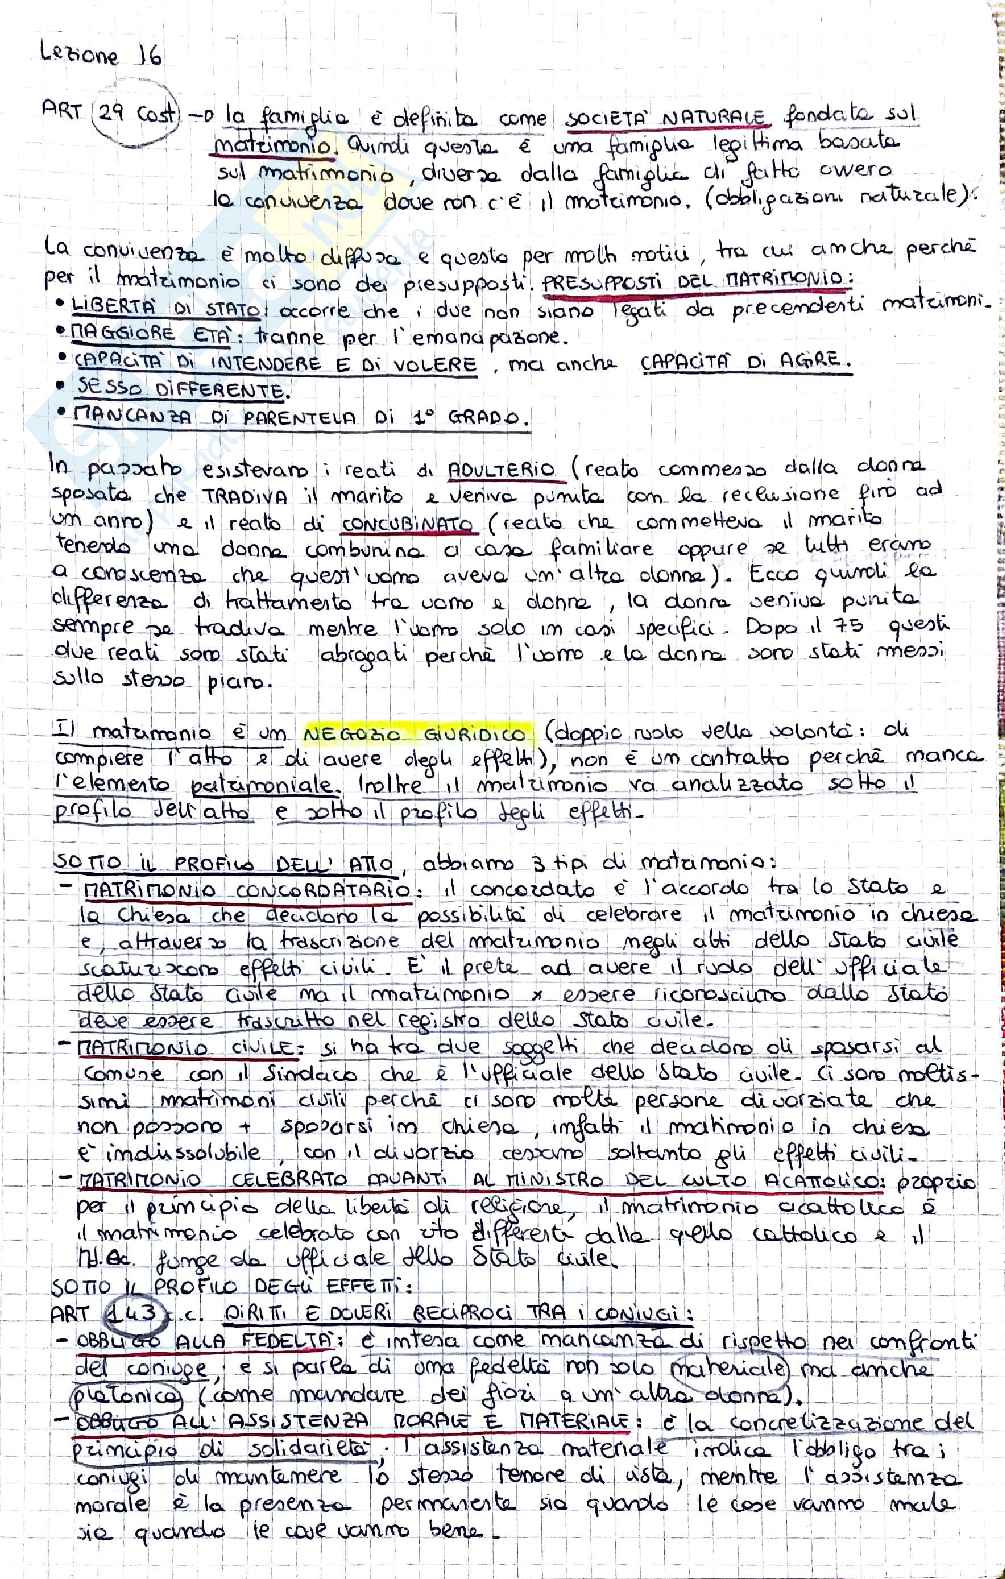 Lezione 16
ART 29 Cost → la famiglia è definita come SOCIETÀ NATURALE fondata sul
matrimonio. Quindi questa è una famiglia legittima basata
sul matrimonio, diversa dalla famiglia di fatto ovvero
la convivenza dove non c'è il matrimonio. (obbligazioni naturale).
La convivenza è molto diffusa e questo per molti motivi, tra cui anche perché
per il matrimonio ci sono dei presupposti. PRESUPPOSTI DEL MATRIMONIO:
• LIBERTÀ DI STATO: occorre che i due non siano legati da precendenti matrimoni.
• MAGGIORE ETÀ: tranne per l'emancipazione.
• CAPACITÀ DI INTENDERE E DI VOLERE, ma anche CAPACITÀ DI AGIRE.
• SESSO DIFFERENTE.
• MANCANZA DI PARENTELA DI 1° GRADO.
In passato esistevano i reati di ADULTERIO (reato commesso dalla donna
sposata che TRADIVA il marito e veniva punita con la reclusione fino ad
un anno) e il reato di CONCUBINATO (reato che commetteva il marito
tenendo una donna combunina a casa familiare oppure se tutti erano
a conoscenza che quest'uomo aveva un'altra donna). Ecco quindi la
differenza di trattamento tra uomo e donna, la donna veniva punita
sempre se tradiva mentre l'uomo solo in casi specifici. Dopo il 75 questi
due reati sono stati abrogati perché l'uomo e la donna sono stati messi
sullo stesso piano.
Il matrimonio è un NEGOZIO GIURIDICO (doppio ruolo della volontà: di
compiere l'atto e di avere degli effetti), non è un contratto perché manca
l'elemento patrimoniale. Inoltre il matrimonio va analizzato sotto il
profilo dell'atto e sotto il profilo degli effetti.
SOTTO IL PROFILO DELL'ATTO, abbiamo 3 tipi di matrimonio:
- MATRIMONIO CONCORDATARIO: il concordato è l'accordo tra lo Stato e
la Chiesa che decidono la possibilità di celebrare il matrimonio in chiesa
e, attraverso la trascrizione del matrimonio negli atti dello Stato civile
scaturiscono effetti civili. È il prete ad avere il ruolo dell'ufficiale
dello Stato civile ma il matrimonio x essere riconosciuto dallo Stato
deve essere trascritto nel registro dello stato civile.
- MATRIMONIO CIVILE: si ha tra due soggetti che decidono di sposarsi al
Comune con il Sindaco che è l'ufficiale dello Stato civile. Ci sono moltis-
simi matrimoni civili perché ci sono molte persone divorziate che
non possono + sposarsi in chiesa, infatti il matrimonio in chiesa
è indissolubile, con il divorzio cessano soltanto gli effetti civili.
- MATRIMONIO CELEBRATO DAVANTI AL MINISTRO DEL CULTO ACATTOLICO: proprio
per il principio della libertà di religione, il matrimonio acattolico è
il matrimonio celebrato con rito differenti dalla quello cattolico e il
funge da ufficiale dello Stato civile.
SOTTO IL PROFILO DEGLI EFFETTI:
ART 143 c.c. DIRITTI E DOVERI RECIPROCI TRA I CONIUGI:
- OBBLIGO ALLA FEDELTÀ: è intesa come mancanza di rispetto nei confronti
del coniuge, e si parla di una fedeltà non solo materiale, ma anche
platonica (come mandare dei fiori a un'altra donna).
- OBBLIGO ALL'ASSISTENZA MORALE E MATERIALE: è la concretizzazione del
principio di solidarietà, l'assistenza materiale indica l'obbligo tra i
coniugi di mantenere lo stesso tenore di vista, mentre l'assistenza
morale è la presenza permanente sia quando le cose vanno male
sia quando le cose vanno bene.